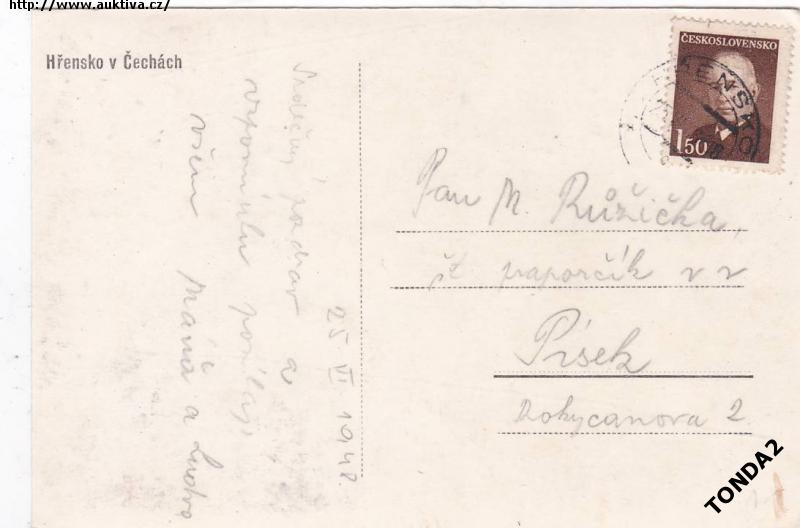 http://www.auktiva.cz/
Hřensko v Čechách
ČESKOSLOVENSKO
1 50
Srdečný pozdrav a
vzpomínku posílají
všem Máňa a
25 VI 1948
Pan M. Růžička,
št. v v
Písek
Rokycanova 2
TONDA2